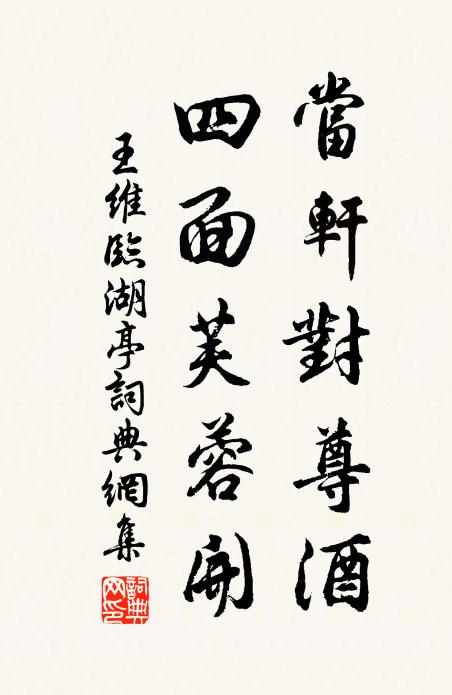 當軒對尊酒
四面芙蓉開
王維臨湖亭詞典網集
詞典網印